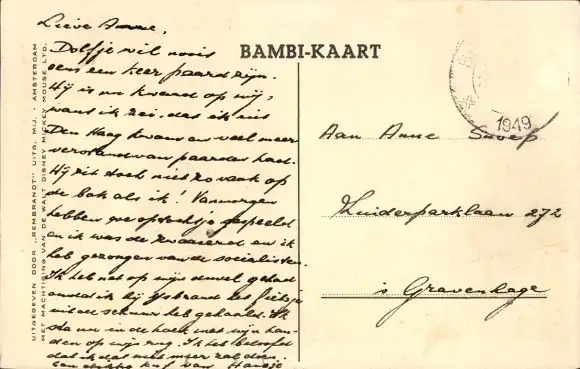 Lieve Anne,
Dolfje wil nooit
eens een keer paard zijn.
Hij is nu kwaad op mij,
want ik zei, dat ik uit
Den Haag kwam en veel meer
verstand van paarden had.
Hij zit toch niet zo vaak op
de bok als ik! Vanmorgen
hebben we optochtje gespeeld
en ik was de en ik
heb gezongen van de socialisten.
Ik heb net op mijn duvel gehad
omdat ik bij IJsbrand het fietsje
uit de schuur heb gehaald. Ik
sta nu in de hoek met mijn han-
den op mijn rug. Ik heb beloofd
dat ik dat niet meer zal doen.
Een dikke kus van Hansje
BAMBI-KAART
UITGEGEVEN DOOR „REMBRANDT" UITG. MIJ. - AMSTERDAM
MET MACHTIGING VAN DE WALT DISNEY MICKEY MOUSE LTD.
1949
Aan Anne Snoep
Zuiderparklaan 272
's Gravenhage